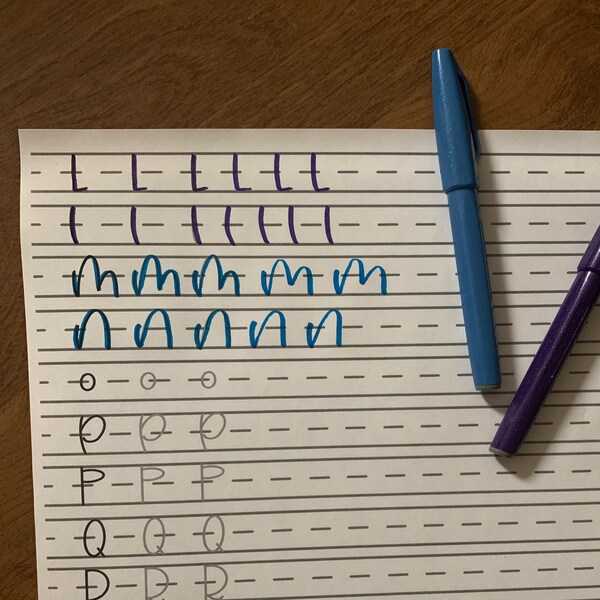 L L L L L L
l l l l l l l
m m m m m
n n n n n
o o o
P P P
P P P
Q Q Q
R R R